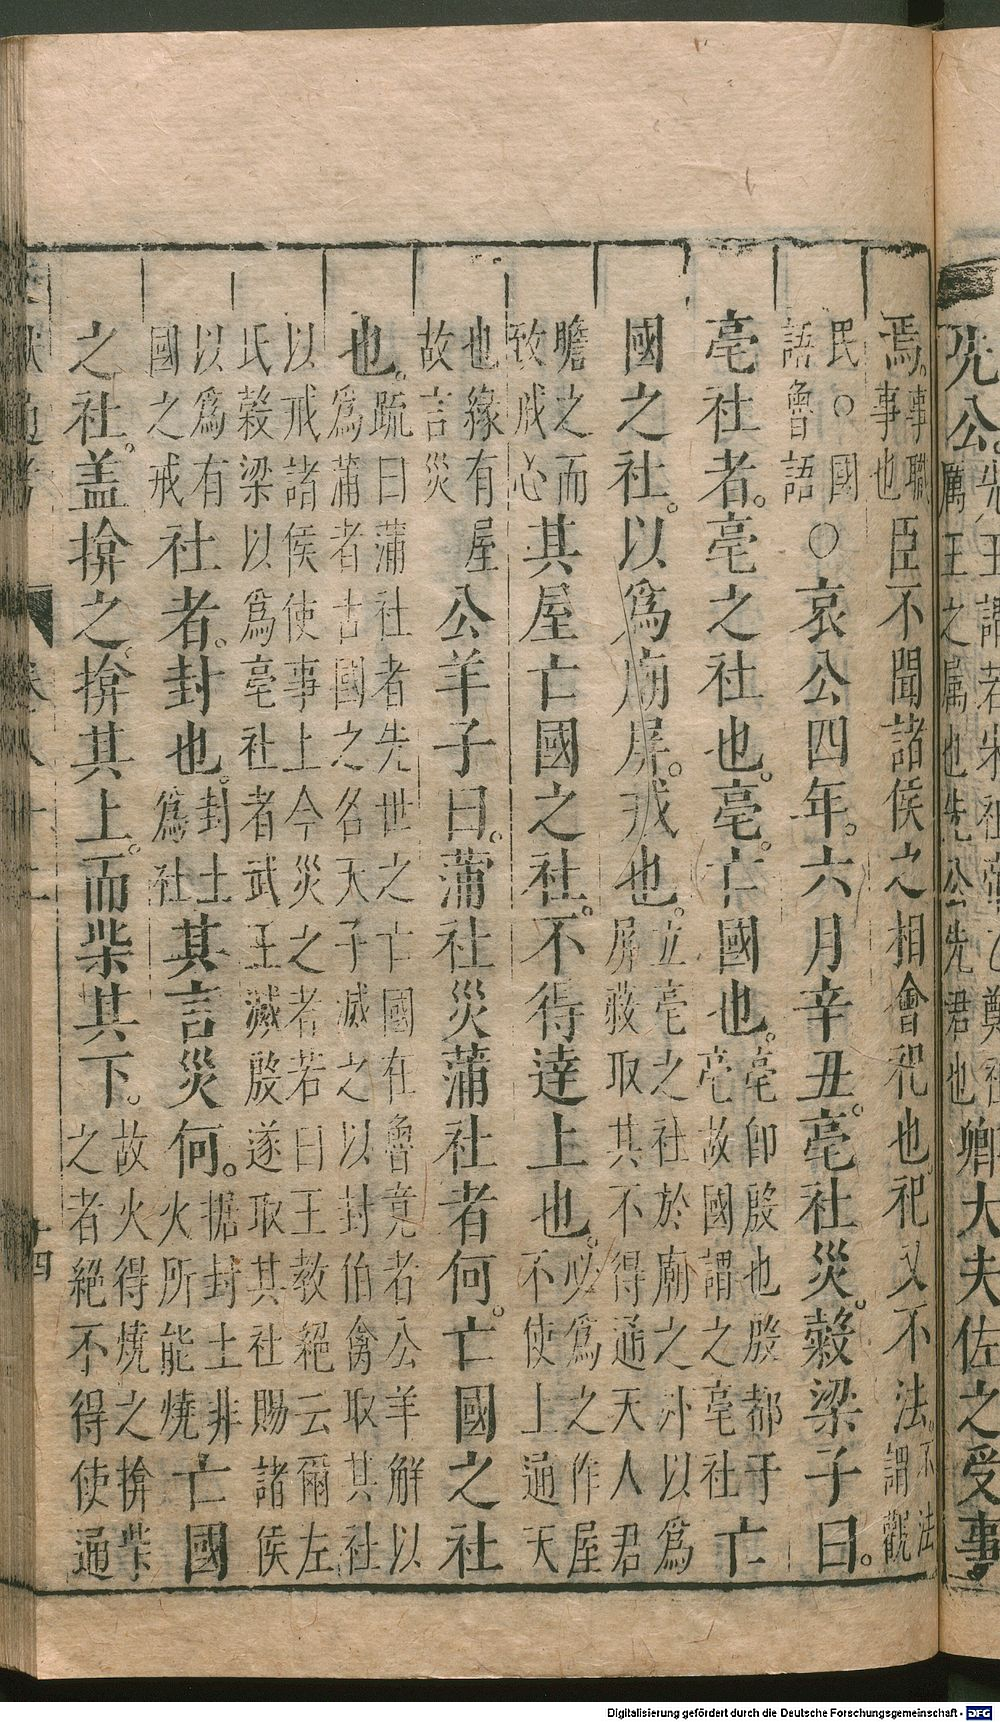 先公。先王謂若宋祖帝乙鄭祖厲王之屬也先公先君也卿大夫佐之受事
焉。事職事也臣不聞諸侯之相會祀也。祀又不法。不法謂觀
民○國語魯語○哀公四年。六月辛丑。亳社災。榖梁子曰。
亳社者。亳之社也。亳。亡國也。亳卽殷也殷都于亳故國謂之亳社亡
國之社。以爲廟屏。戒也。立亳之社於廟之外以爲屏蔽取其不得通天人君
瞻之而致戒心其屋亡國之社。不得達上也。必爲之作屋不使上通天
也緣有屋故言災公羊子曰。蒲社災蒲社者何。亡國之社
也。疏曰蒲社者先世之亡國在魯竟者公羊解以爲蒲者古國之名天子滅之以封伯禽取其社
以戒諸侯使事上今災之者若曰王教絕云爾左氏榖梁以爲亳社者武王滅殷遂取其社賜諸侯
以爲有國之戒社者。封也。封土爲社其言災何。據封土非火所能燒亡國
之社。盖揜之。揜其上。而柴其下。故火得燒之揜柴之者絕不得使通
十四
Digitalisierung gefördert durch die Deutsche Forschungsgemeinschaft - DFG